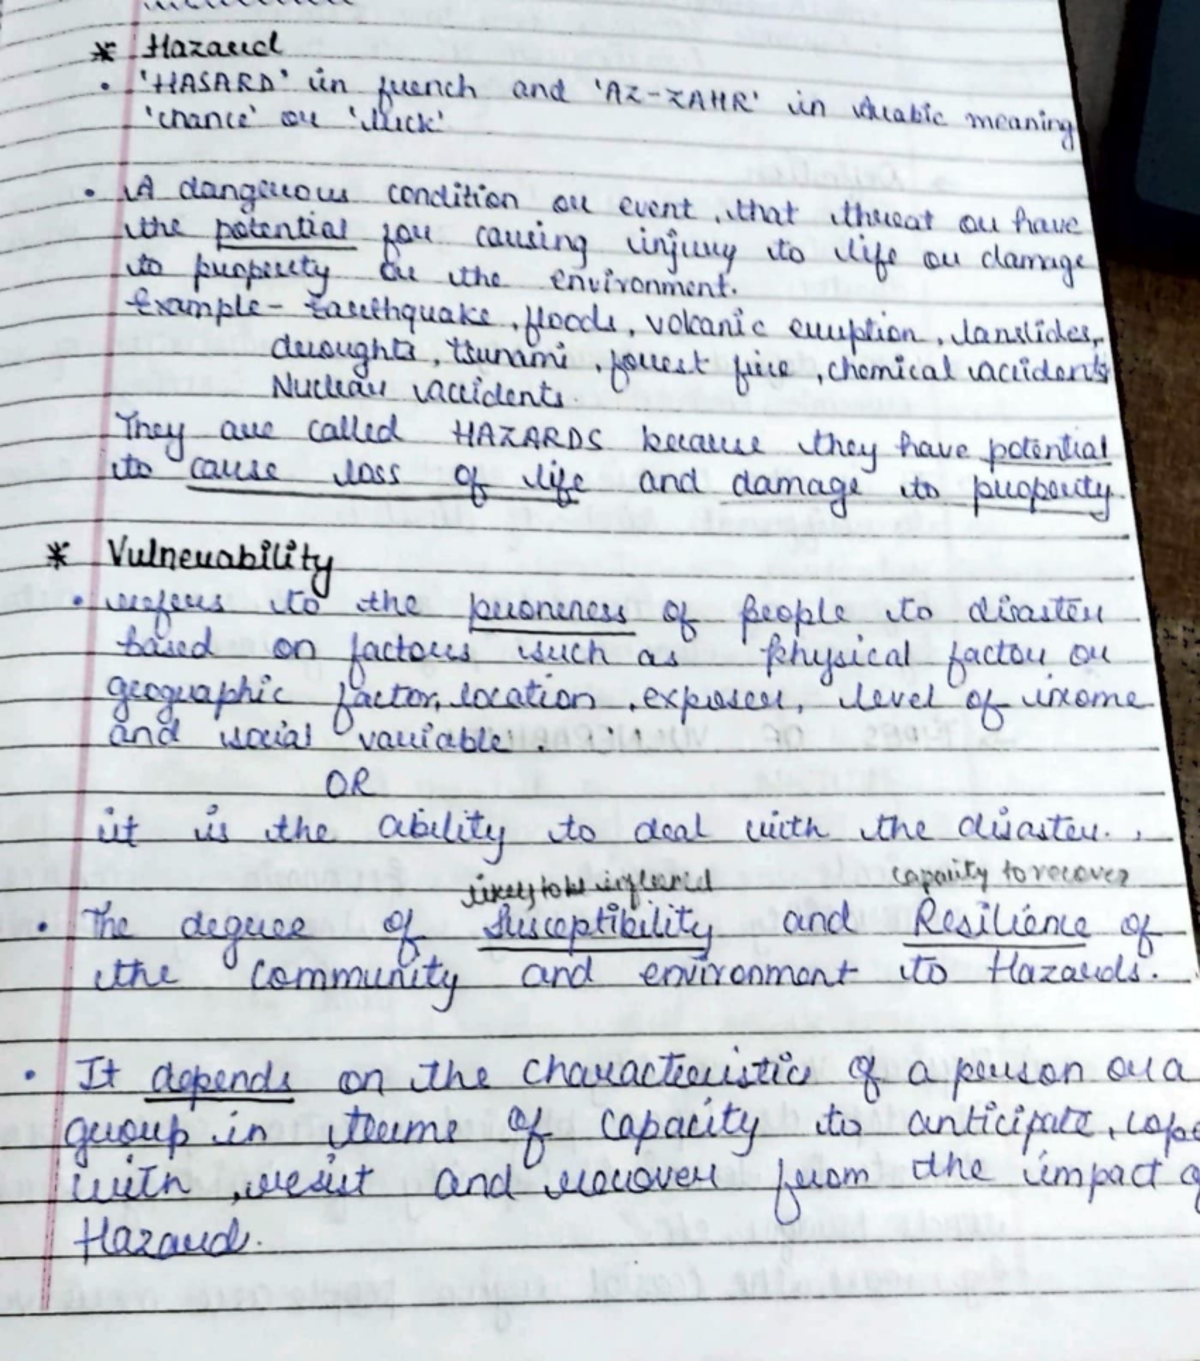 * Hazard
• 'HASARD' in french and 'AZ-ZAHR' in Arabic meaning
'chance' or 'luck'
• A dangerous condition or event, that threat or have
the potential for causing injury to life or damage
to property or the environment.
Example - Earthquake, floods, volcanic eruption, lanslides,
droughts, tsunami, forest fire, chemical accidents
Nuclear accidents.
They are called HAZARDS because they have potential
to cause loss of life and damage to property.
* Vulnerability
• refers to the proneness of people to disaster
based on factors such as physical factor or
geographic factor, location, exposer, level of income
and social variable.
OR
it is the ability to deal with the disaster.
likely to be inflenced capacity to recover
• The degree of Susceptibility and Resilience of
the community and environment to Hazards.
• It depends on the characteristic of a person or a
group in terms of capacity to anticipate, cope
with, resist and recover from the impact
Hazard.